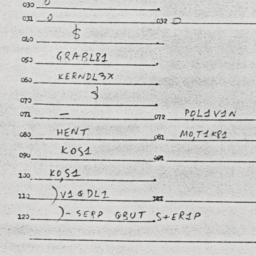 030 0
031 0 032 0
040 $
050 GRAPL81
060 KERNDL3X
070 $
071 — 072 POL1V1N
080 HENT 081 MOT1K81
090 KOS1
100 KO,S1
110 )V1&DL1
120 )- SERP GBUT S+ER1P